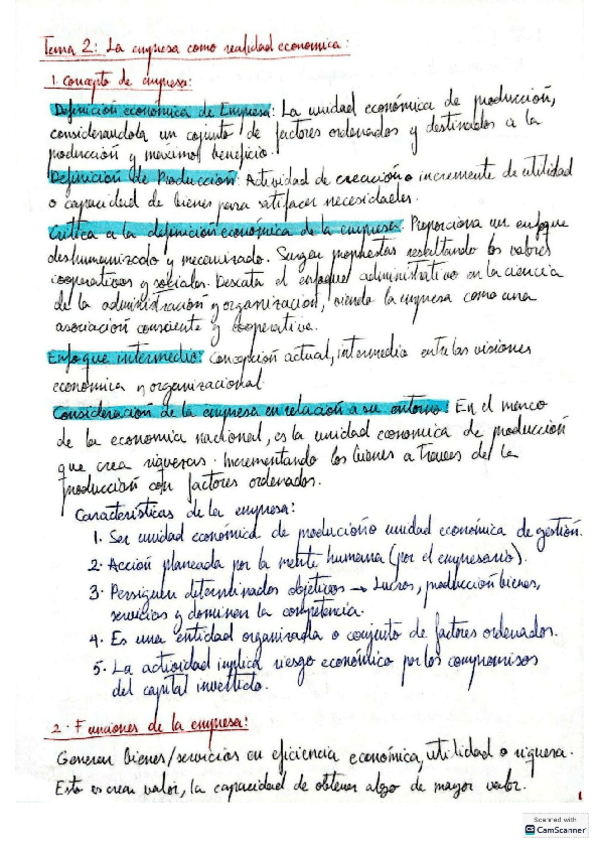 Tema 2: La empresa como realidad economica:
1. Concepto de empresa:
Definición económica de Empresa: La unidad económica de producción,
considerandola un cojunto de factores ordenados y destinados a la
producción y máximo beneficio.
Definición de Producción: Actividad de creación o incremente de utilidad
o capacidad de bienes para satisfacer necesidades.
Crítica a la definición económica de la empresa: Proporciona un enfoque
deshumanizado y mecanizado. Surgen propuestas resaltando los valores
cooperativos y sociales. Descata el enfoque administrativo en la ciencia
de la administración y organización, viendo la empresa como una
asociación consciente y cooperativa.
Enfoque intermedio: Concepción actual, intermedia entre las visiones
económica y organizacional.
Consideración de la empresa en relación a su entorno: En el marco
de la economia nacional, es la unidad economica de producción
que crea riquezas. Incrementando los bienes a traves de la
producción con factores ordenados.
Características de la empresa:
1. Ser unidad económica de produciono unidad económica de gestión.
2. Acción planeada por la mente humana (por el empresario).
3. Persiguen determinados objetivos → Lucros, producción bienes,
servicios y dominen la competencia.
4. Es una entidad organizada o conjunto de factores ordenados.
5. La actividad implica riesgo económico por los compromisos
del capital invertido.
2. Funciones de la empresa:
Generan bienes/servicios en eficiencia económica, utilidad o riqueza.
Esto es crear valor, la capacidad de obtener algo de mayor valor.
1
Scanned with
CS CamScanner